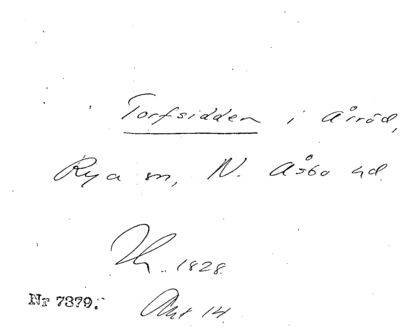 Torfsidden i Åiröd,
Rya sn, N. Åsbo hd.
1828.
Nr 7379. Akt 14